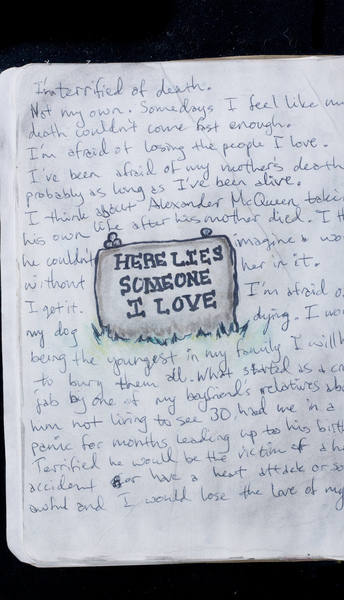 I'm terrified of death.
Not my own. Somedays I feel like my
death couldn't come fast enough.
I'm afraid of losing the people I love.
I've been afraid of my mother's death
probably as long as I've been alive.
I think about Alexander McQueen taking
his own life after his mother died. I
he couldn't imagine a
without her in it.
I get it. I'm afraid
my dog dying. I
HERE LIES
SOMEONE
I LOVE
being the youngest in my family I will
to bury them all. What started as a
jab by one of my boyfriend's relatives
him not living to see 30 had me in a
panic for months leading up to his
Terrified he would be the victim of a
accident or have a heart attack or
awful and I would lose the love of my